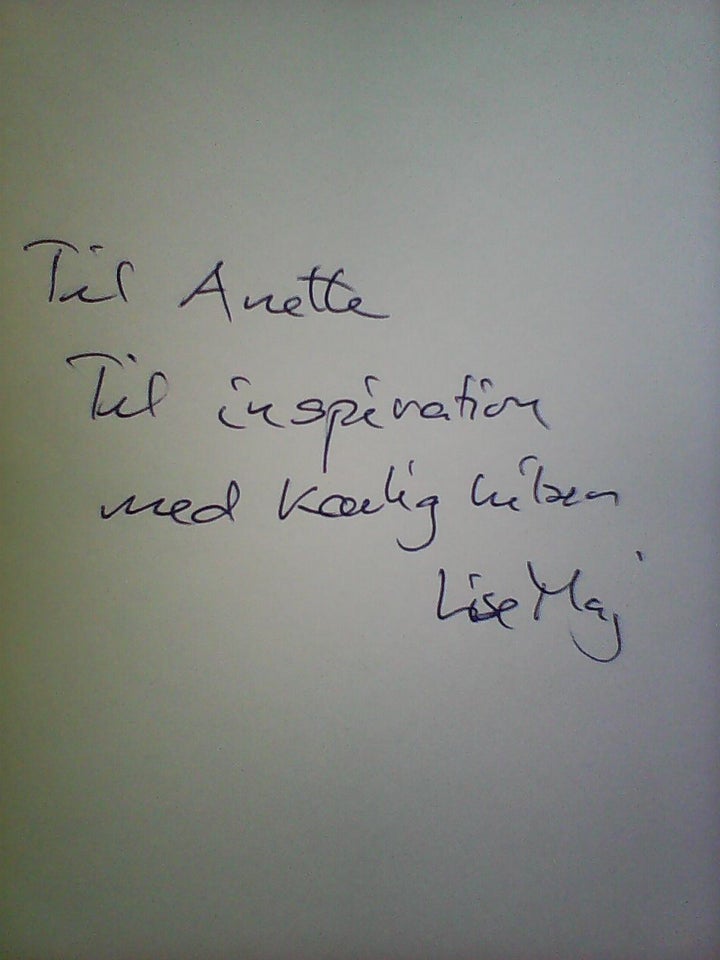 Til Anette
Til inspiration
med kærlig hilsen
Lise Maj